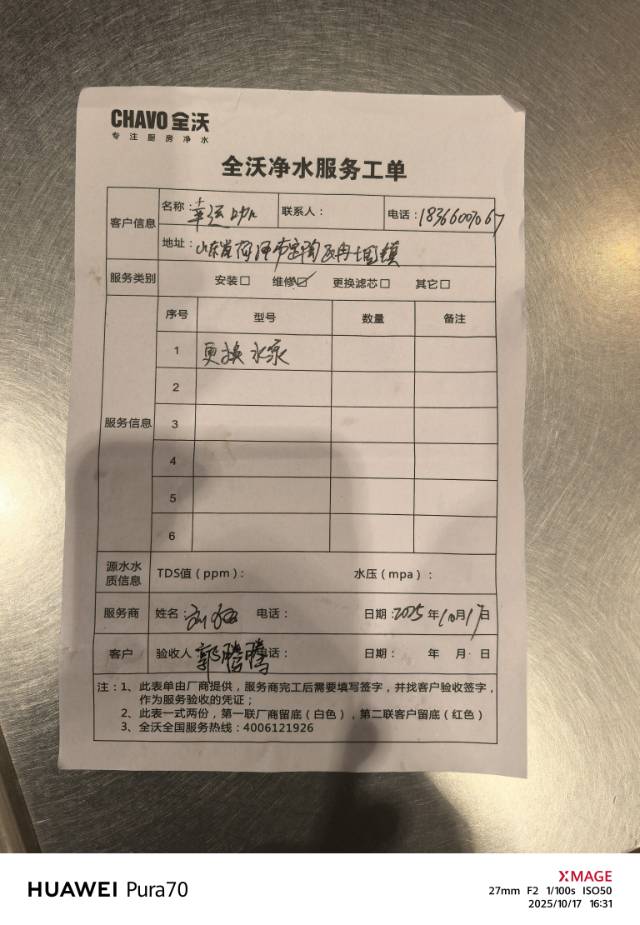 CHAVO 全沃
专注厨房净水
全沃净水服务工单
客户信息 名称：幸运 联系人： 电话：18366007067
地址：山东省菏泽市定陶区冉堌镇
服务类别 安装□ 维修☑ 更换滤芯□ 其它□
服务信息 序号 型号 数量 备注
1 更换水泵
2
3
4
5
6
源水水质信息 TDS值（ppm）： 水压（mpa）：
服务商 姓名： 电话： 日期：2025年10月17日
客户 验收人 郭腾腾 电话： 日期： 年 月 日
注：1、此表单由厂商提供，服务商完工后需要填写签字，并找客户验收签字，
作为服务验收的凭证；
2、此表一式两份，第一联厂商留底（白色），第二联客户留底（红色）
3、全沃全国服务热线：4006121926
HUAWEI Pura70
XMAGE
27mm F2 1/100s ISO50
2025/10/17 16:31